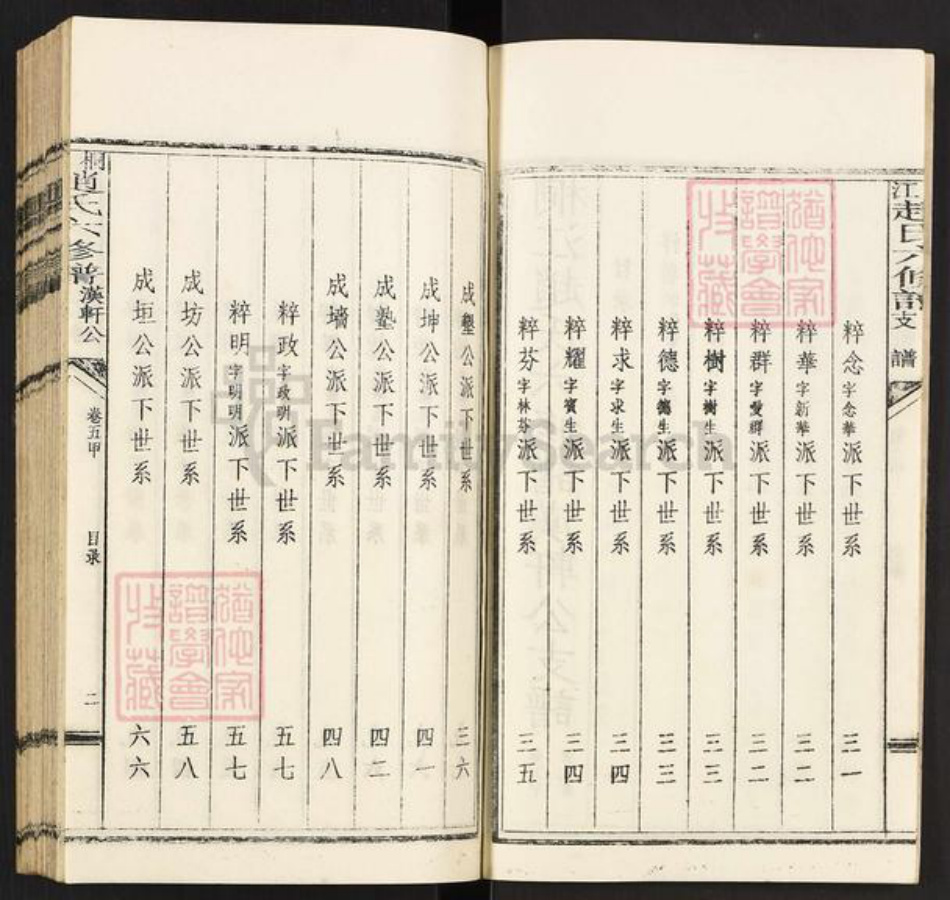 江趙氏六修譜支譜
粹念字念華派下世系 三一
粹華字新華派下世系 三二
粹群字愛群派下世系 三二
粹樹字樹生派下世系 三三
粹德字德生派下世系 三三
粹求字求生派下世系 三四
粹耀字賓生派下世系 三四
粹芬字林芬派下世系 三五
成墾公派下世系 三六
成坤公派下世系 四一
成塾公派下世系 四二
成墻公派下世系 四八
粹政字政明派下世系 五七
粹明字明明派下世系 五七
成坊公派下世系 五八
成垣公派下世系 六六
桐趙氏六修譜漢軒公
卷五甲 目录 二
猶他家譜學會收藏
猶他家譜學會收藏
FamilySearch